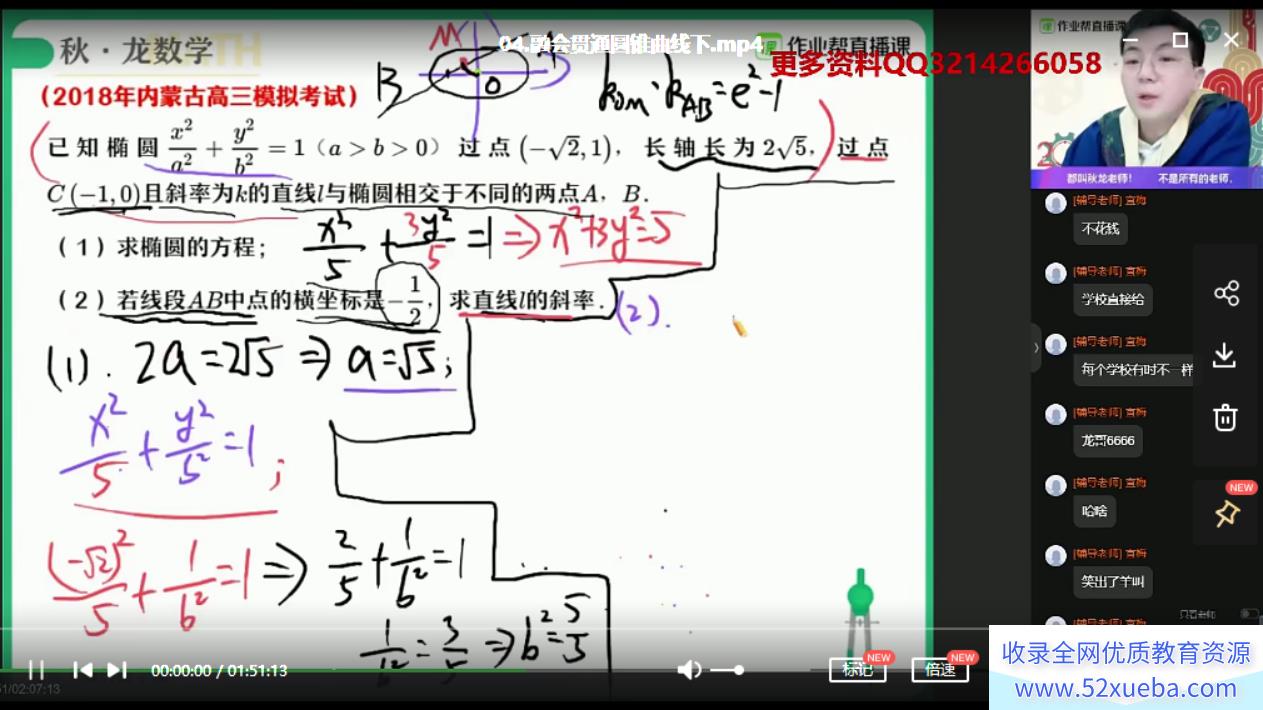 04.融会贯通圆锥曲线下.mp4
秋·龙数学
作业帮直播课
作业帮直播课
更多资料QQ3214266058
(2018年内蒙古高三模拟考试)
M
B
O
k_{OM}·k_{AB}=e²-1
已知椭圆 x²/a² + y²/b² = 1 (a > b > 0) 过点 (-√2,1), 长轴长为 2√5, 过点
C(-1,0)且斜率为k的直线l与椭圆相交于不同的两点A, B.
(1) 求椭圆的方程;
x²/5 + 3y²/5 = 1 ⇒ x²+3y²=5
(2) 若线段AB中点的横坐标是-1/2, 求直线l的斜率.
(2).
(1). 2a=2√5 ⇒ a=√5;
x²/5 + y²/5² = 1;
(-√2)²/5 + 1/b² = 1 ⇒ 2/5 + 1/b² = 1
1/b² = 3/5 ⇒ b² = 5
都叫秋龙老师! 不是所有的老师,
[辅导老师] 宣梅
不花钱
[辅导老师] 宣梅
学校直接给
[辅导老师] 宣梅
每个学校有时不一样
[辅导老师] 宣梅
龙哥6666
[辅导老师] 宣梅
哈啥
[辅导老师] 宣梅
笑出了羊叫
只看老师
NEW
00:00:00 / 01:51:13
标记 NEW
倍速 NEW
51/02:07:13
收录全网优质教育资源
www.52xueba.com